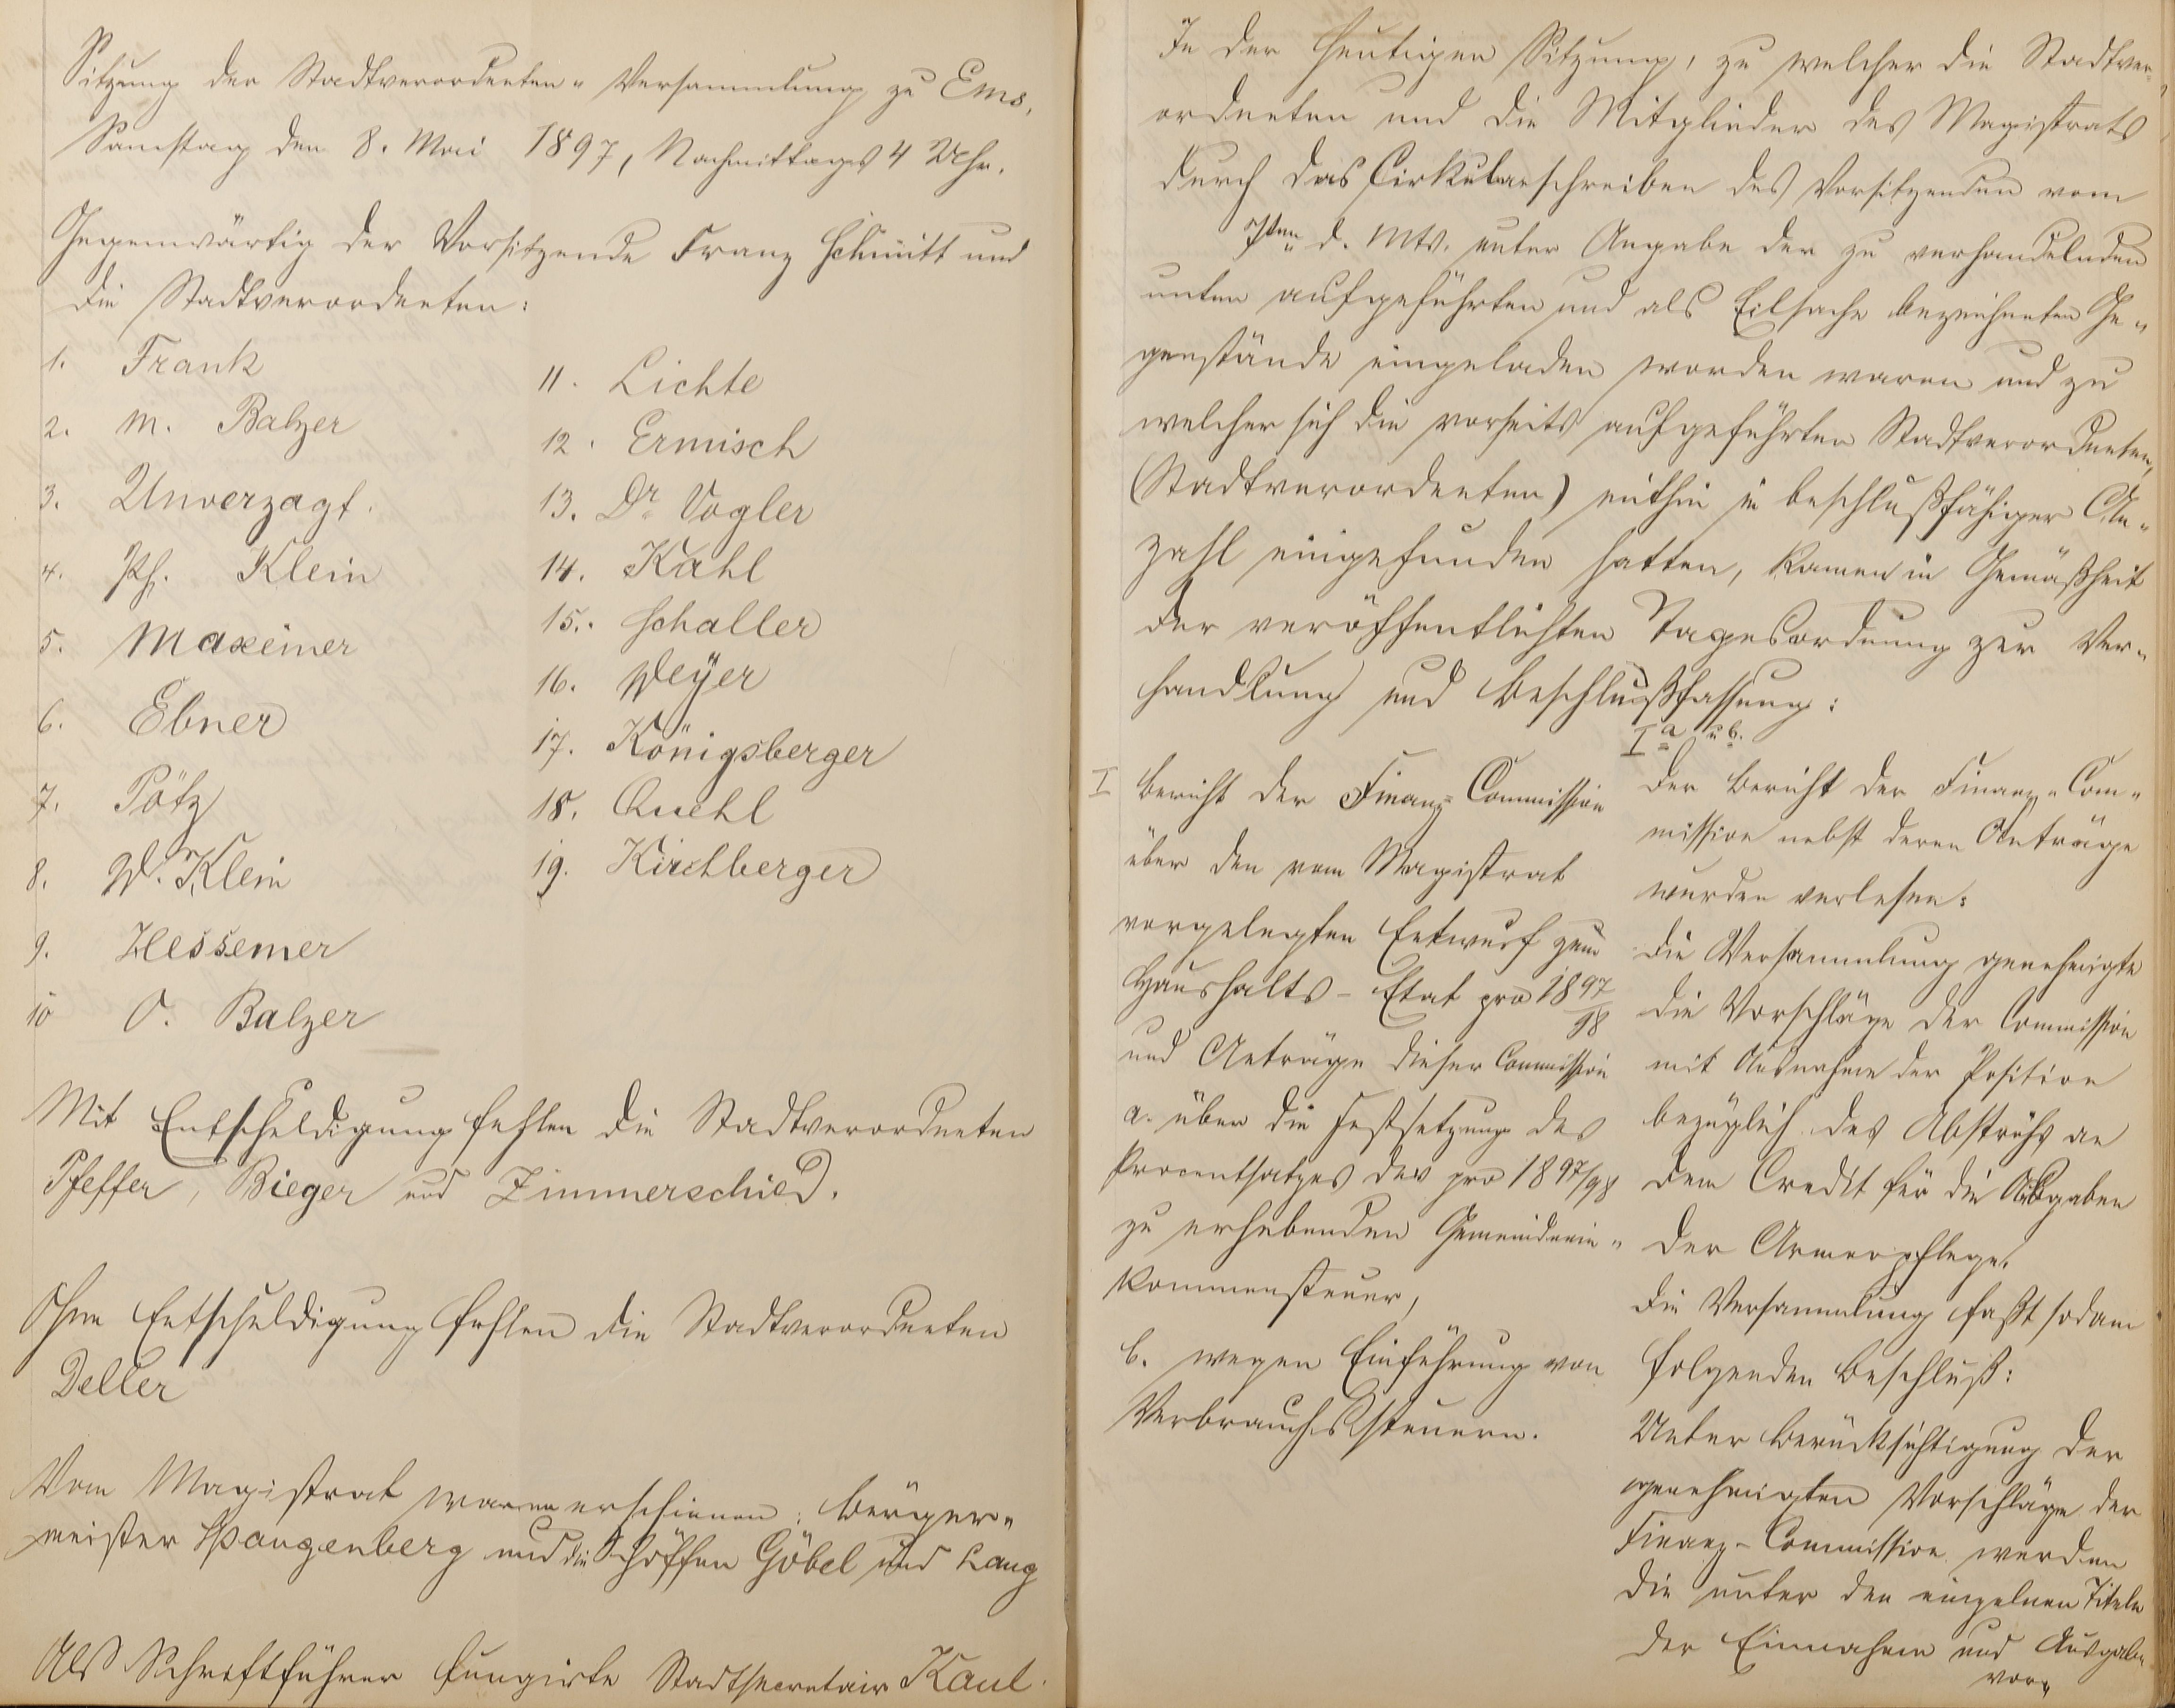 Sitzung der Stadtverordneten-Versammlung zu Ems.
Samstag den 8. Mai 1897, Nachmittags 4 Uhr.
Gegenwärtig der Vorsitzende Franz Schmitt und
die Stadtverordneten:
1. Frank
2. M. Balzer
3. Unverzagt.
4. Ph. Klein
5. Maxeiner
6. Ebner
7. Pötz
8. W. Klein
9. Hessemer
10 O. Balzer
11. Lichte
12. Ermisch
13. Dr. Vogler
14. Kahl
15. Schaller
16. Weÿer
17. Königsberger
18. Quehl
19. Kirchberger
Mit Entschuldigung fehlen die Stadtverordneten
Pfeffer, Bieger und Zimmerschied.
Ohne Entschuldigung fehlen die Stadtverordneten
Deller
Vom Magistrat waren erschienen: Bürger-
meister Spangenberg und die Schöffen Göbel und Lang
Als Schriftführer fungirte Stadtsecretair Kaul.
In der heutigen Sitzung, zu welcher die Stadtver-
ordneten und die Mitglieder des Magistrats
durch das Cirkularschreiben des Vorsitzenden vom
7ten d. Mts. unter Angabe der zu verhandelnden
unten aufgeführten und als Eilsache bezeichneten Ge-
genstände eingeladen worden waren und zu
welcher sich die vorseits aufgeführten Stadtverordneten,
(Stadtverordneten) mithin in beschlußfähiger An-
zahl eingefunden hatten, kamen in Gemäßheit
der veröffentlichten Tagesordnung zur Ver-
handlung und Beschlußfassung:
I Bericht der Finanz-Commission
über den vom Magistrat
vorgelegten Entwurf zum
Haushalts-Etat pro 1897/98
und Anträge dieser Commission
a. über die Festsetzung des
Procentsatzes der pro 1897/98
zu erhebenden Gemeindeein-
kommensteuer,
b. wegen Einführung von
Verbrauchssteuern.
I a u b.
Der Bericht der Finanz-Com-
mission nebst deren Anträge
wurden verlesen:
Die Versammlung genehmigte
die Vorschläge der Commission
mit Ausnahme der Position
bezüglich des Abstrichs an
dem Credit für die Ausgaben
der Armenpflege.
Die Versammlung faßt sodann
folgenden Beschluß:
Unter Berücksichtigung der
genehmigten Vorschläge der
Finanz-Commission werden
die unter den einzelnen Titeln
der Einnahme und Ausgabe
vor-